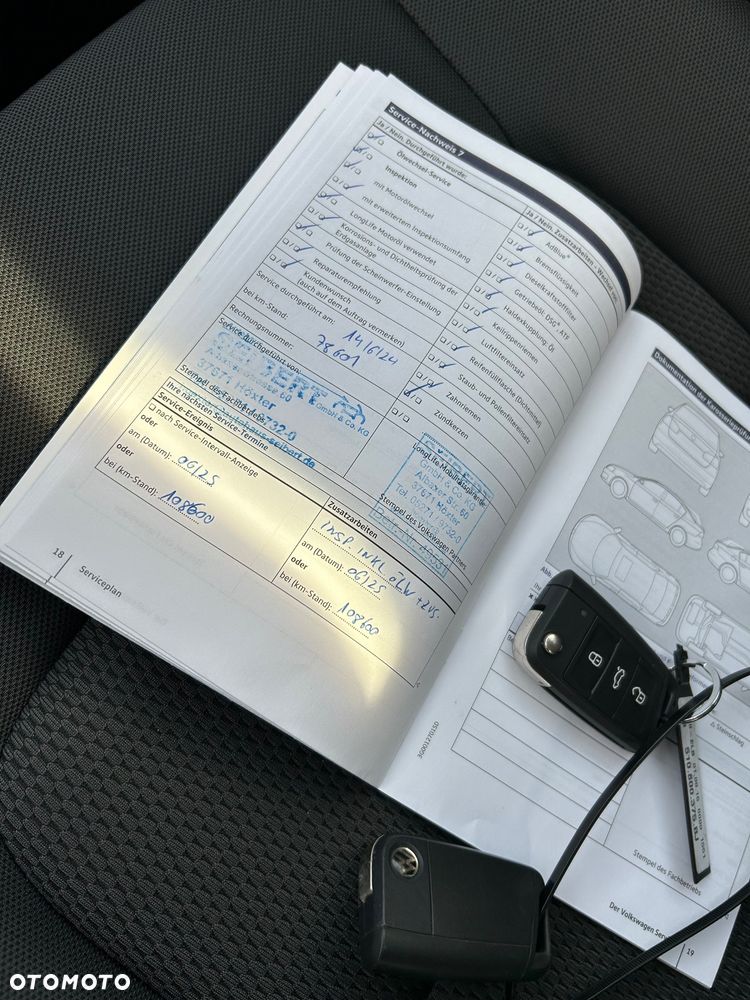 Service-Nachweis 7
Ja / Nein, Durchgeführt wurde:
Ölwechsel-Service
Inspektion
mit Motorölwechsel
mit erweitertem Inspektionsumfang
LongLife Motoröl verwendet
Korrosions- und Dichtheitsprüfung der
Erdgasanlage
Prüfung der Scheinwerfer-Einstellung
Reparaturempfehlung
Kundenwunsch
(auch auf dem Auftrag vermerken)
Service durchgeführt am: 14/6/24
bei km-Stand: 78601
Rechnungsnummer:
Service durchgeführt von:
GmbH & Co. KG
37671 Höxter
Stempel des Fachbetriebs
Ihre nächsten Service-Termine
Service-Ereignis
nach Service-Intervall-Anzeige
oder
am (Datum): 06/25
oder
bei (km-Stand): 108600
Ja / Nein, Zusatzarbeiten - Wechsel von:
AdBlue®
Bremsflüssigkeit
Dieselkraftstofffilter
Getriebeöl: DSG, ATF
Haldexkupplung: Öl
Keilrippenriemen
Luftfiltereinsatz
Reifenfüllflasche (Dichtmittel)
Staub- und Pollenfiltereinsatz
Zahnriemen
Zündkerzen
LongLife Mobilitätsgarantie
GmbH & Co. KG
Albaxer Str. 60
37671 Höxter
Stempel des Volkswagen Partners
Zusatzarbeiten
INSP INKL ÖLW + ZUS.
am (Datum): 06/25
oder
bei (km-Stand): 108600
18
Serviceplan
Dokumentation der Karosserieprüfung
Abb.
Steinschlag
Stempel des Fachbetriebs
19
OTOMOTO